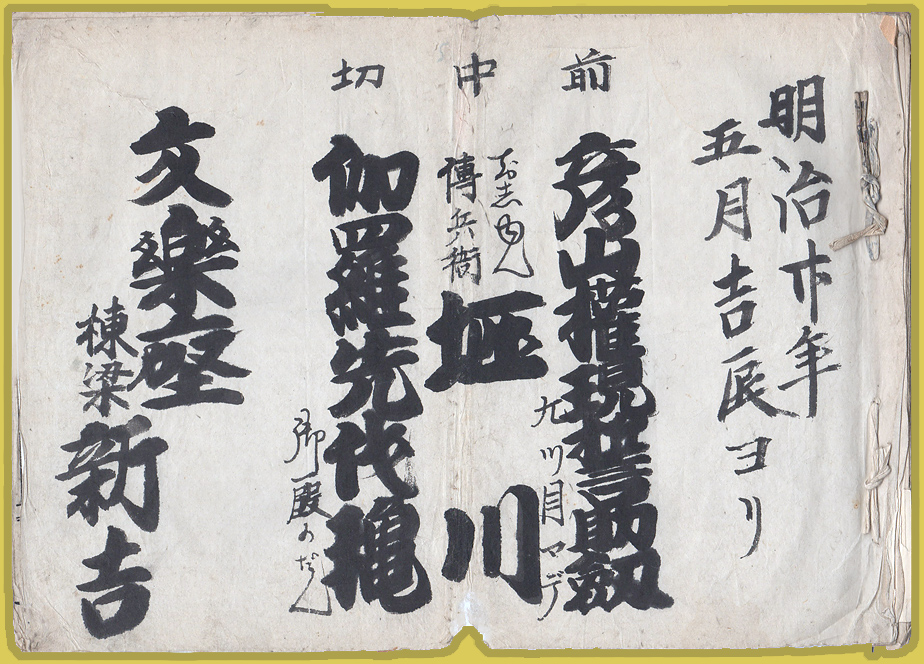 明治 年
五月吉辰ヨリ
前
彦山權現誓助剱
九ツ目マデ
中
お志ゆん
傳兵衛
堀川
切
伽羅先代穐
御殿のだん
文樂座
棟梁
新吉